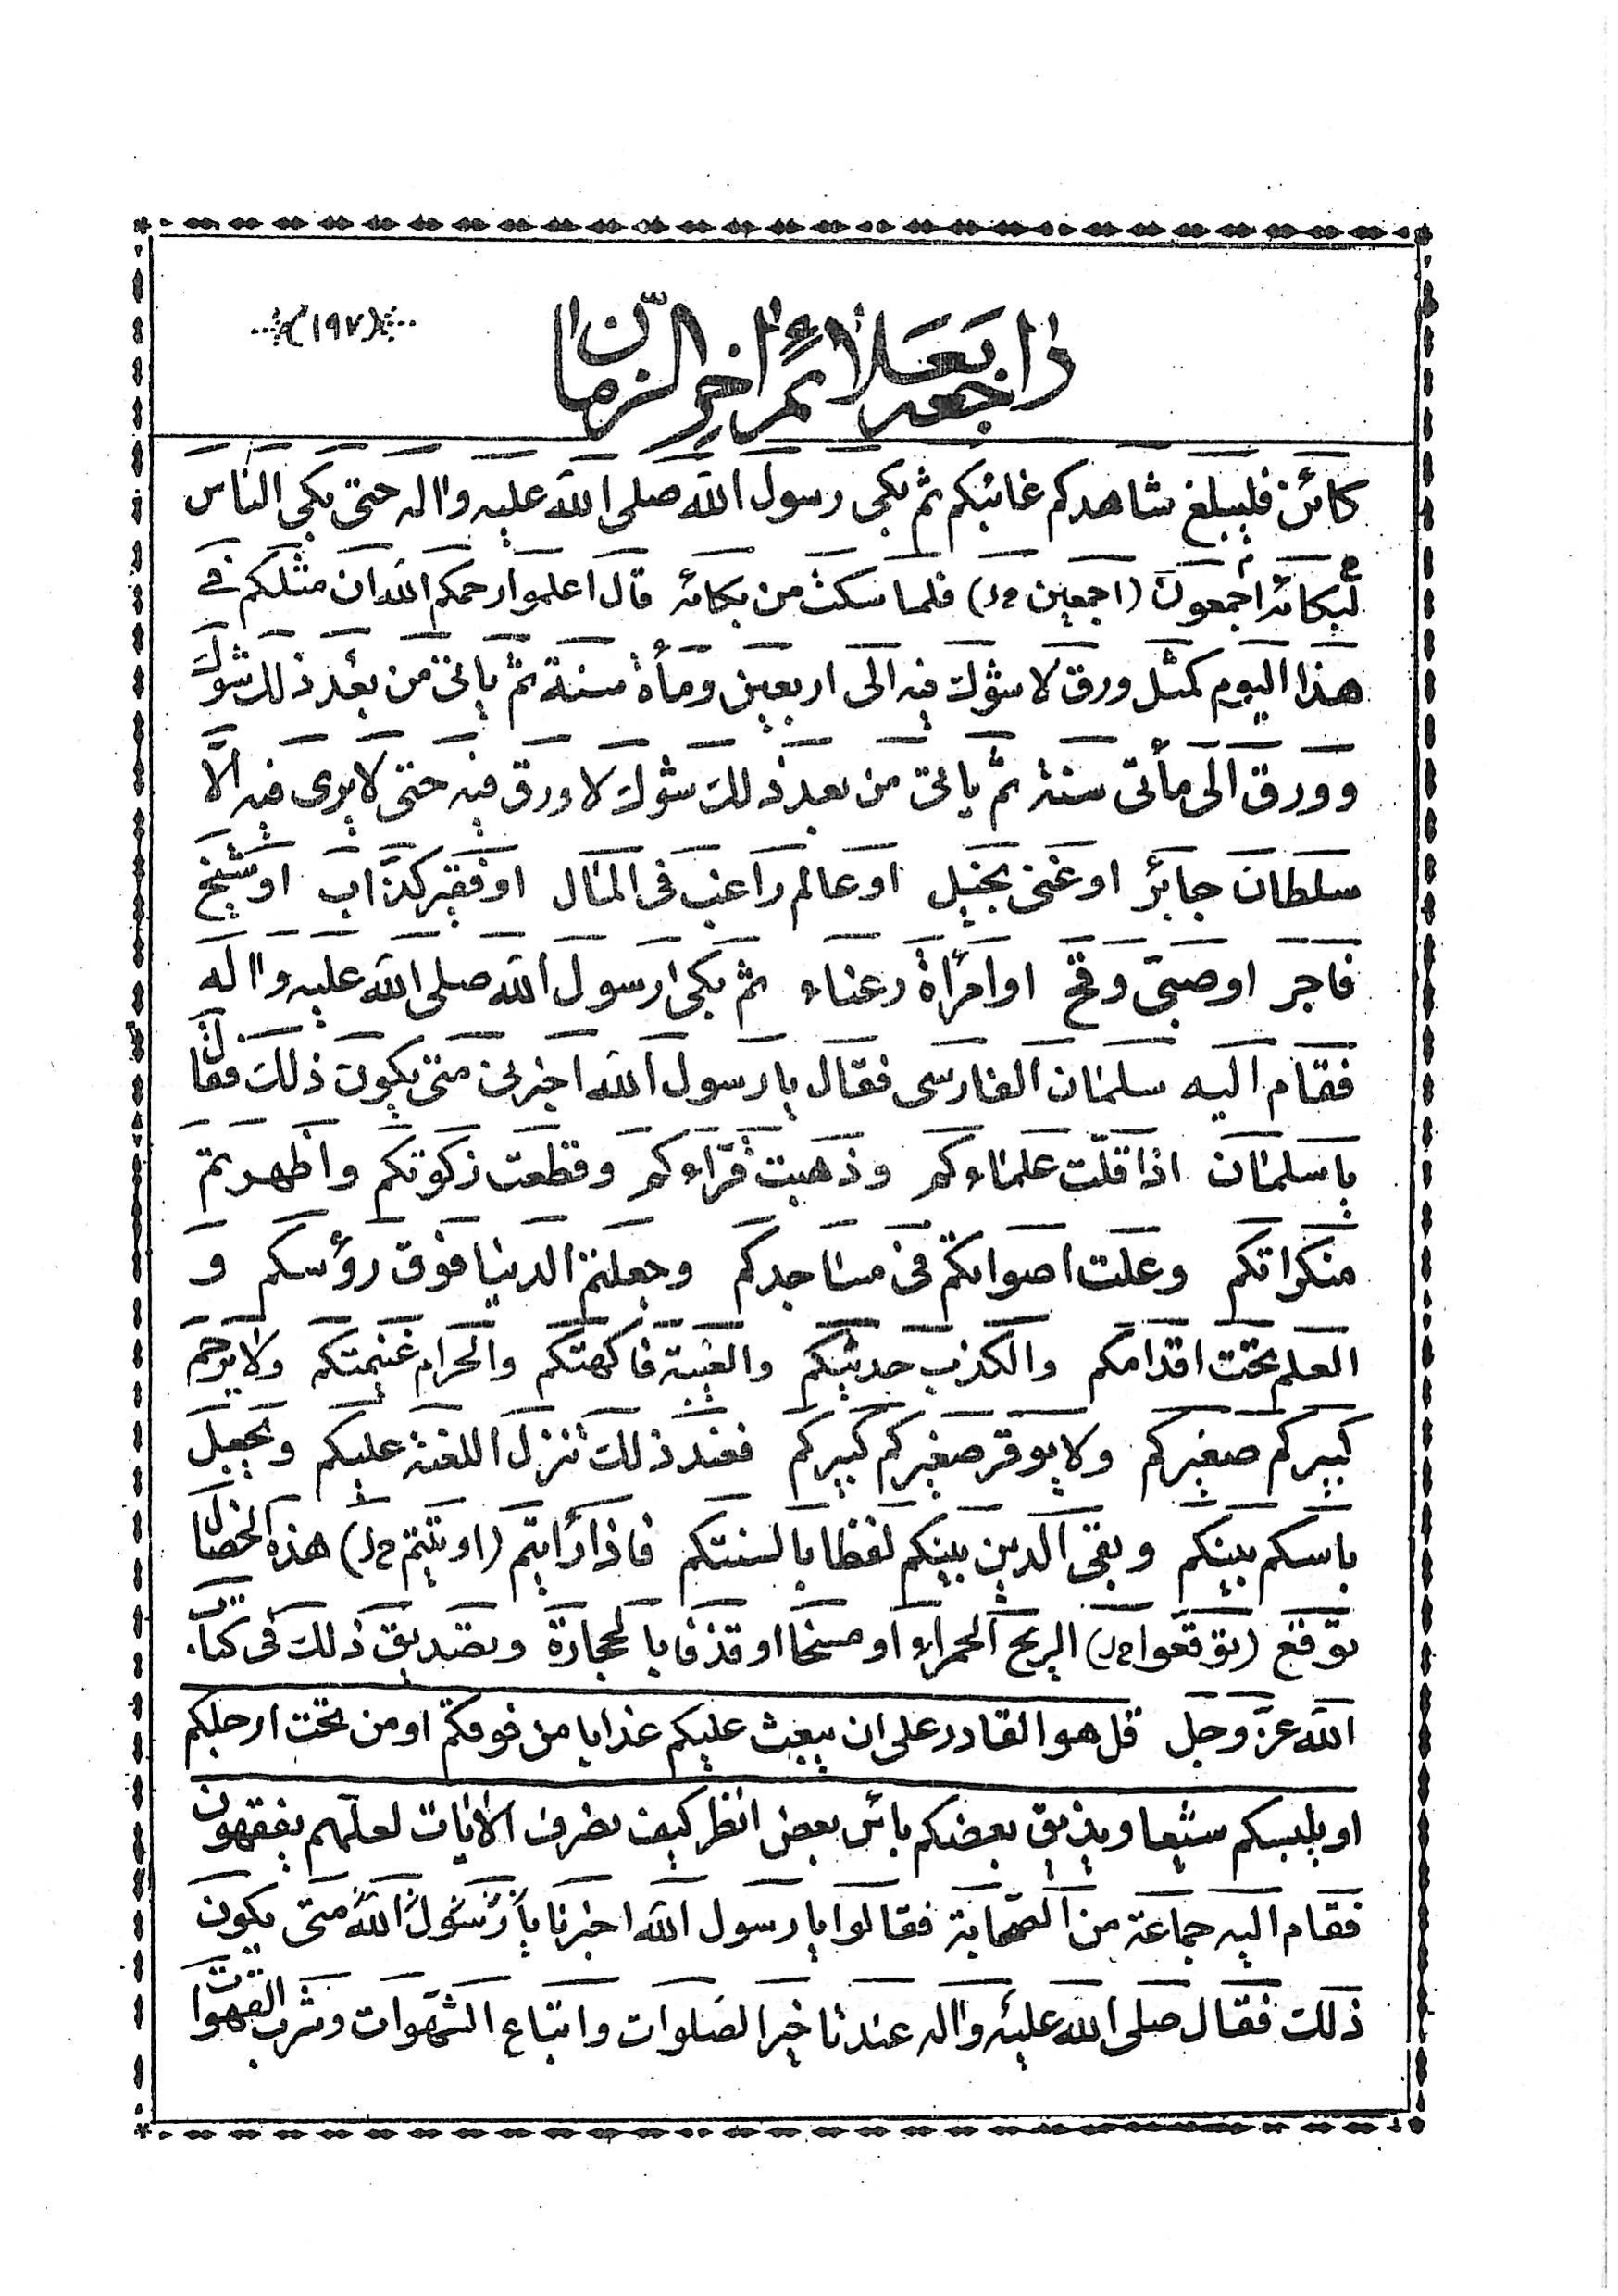 راجع بعلائم اخر الزمان
(۱۹۷)
كائن فليبلغ شاهدكم غائبكم ثم بكى رسول الله صلى الله عليه واله حتى بكى الناس
لبكائه اجمعون (اجمعين م ل) فلما سكت من بكائه قال اعلموا رحمكم الله ان مثلكم فى
هذا اليوم كمثل ورق لا شوك فيه الى اربعين ومأة سنة ثم ياتى من بعد ذلك شوك
وورق الى مأتى سنة ثم ياتى من بعد ذلك شوك لا ورق فيه حتى لا يرى فيه الّا
سلطان جائر او غنى بخيل او عالم راغب فى المال او فقير كذّاب او شيخ
فاجر او صبىّ وقح او امرأة رعناء ثم بكى رسول الله صلى الله عليه واله
فقام اليه سلمان الفارسى فقال يا رسول الله اخبرنى متى يكون ذلك فقال
يا سلمان اذا قلّت علماءكم وذهبت قرّاءكم وقطعت زكوتكم واظهرتم
منكراتكم وعلت اصواتكم فى مساجدكم وجعلتم الدنيا فوق رؤسكم و
العلم تحت اقدامكم والكذب حديثكم والغيبة فاكهتكم والحرام غنيمتكم ولا يرحم
كبيركم صغيركم ولا يوقر صغيركم كبيركم فعند ذلك تنزل اللعنة عليكم ويجعل
باسكم بينكم وبقى الدين بينكم لفظا بالسنتكم فاذا رأيتم (اوتيتم م ل) هذه الخصال
توقع (توقعوا م ل) الريح الحمراء او مسخا او قذفا بالحجارة وتصديق ذلك فى كتاب
الله عزّ وجل قل هو القادر على ان يبعث عليكم عذابا من فوقكم او من تحت ارجلكم
او يلبسكم شيعا ويذيق بعضكم بأس بعض انظر كيف نصرف الايات لعلّهم يفقهون
فقام اليه جماعة من الصّحابة فقالوا يا رسول الله اخبرنا يا رسول الله متى يكون
ذلك فقال صلى الله عليه واله عند تاخير الصلوات واتباع الشهوات وشرب القهوات